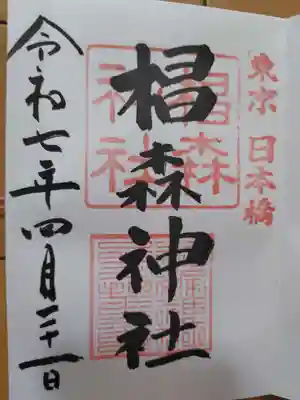 東京 日本橋
椙森神社
椙森
神社
令和七年四月二十一日